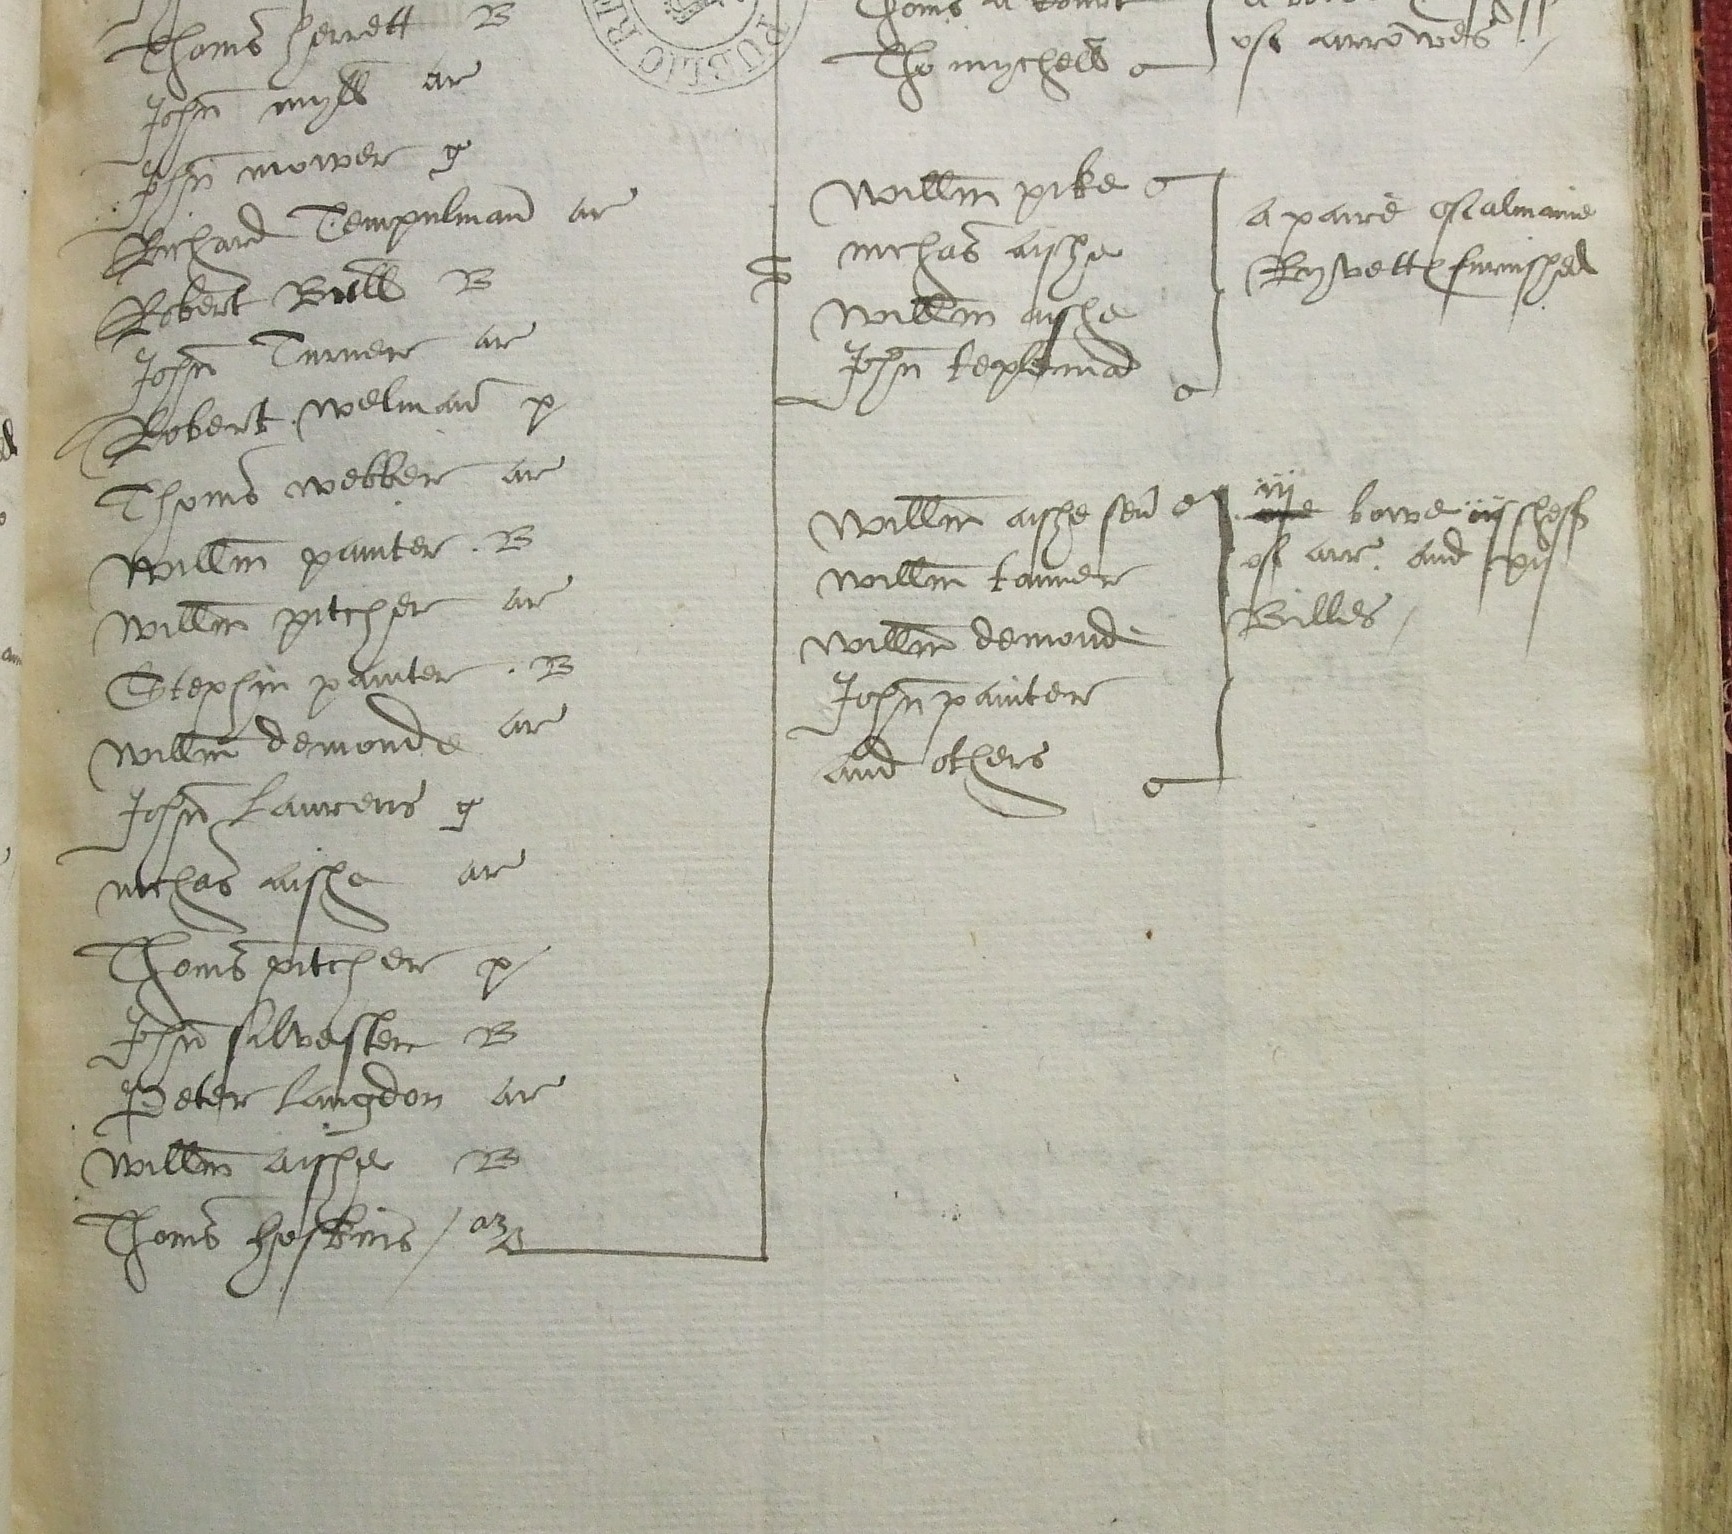 Thoms Herrett B
John myll ar
John mower g
Richard Tempulman ar
Robert Bull B
John Turner ar
Robert welman p
Thoms webber ar
Willm painter B
Willm pitcher ar
Stephin painter B
Willm demonde ar
John Laurens g
nichas aishe ar
Thoms pitcher p
John silvester B
Peter Langdon ar
Willm aishe B
Thoms hoskins / ar
PUBLIC RE
Thoms a
Tho mychell
of arrowes
Willm pike
nichas aishe
Willm aishe
John templeman
a paire of almaine
Ryvett furnished
Willm aishe sen
Willm tanner
Willm demond
John painter
and others
iij
bowe iij sheff
of arr. and vij
Billes /